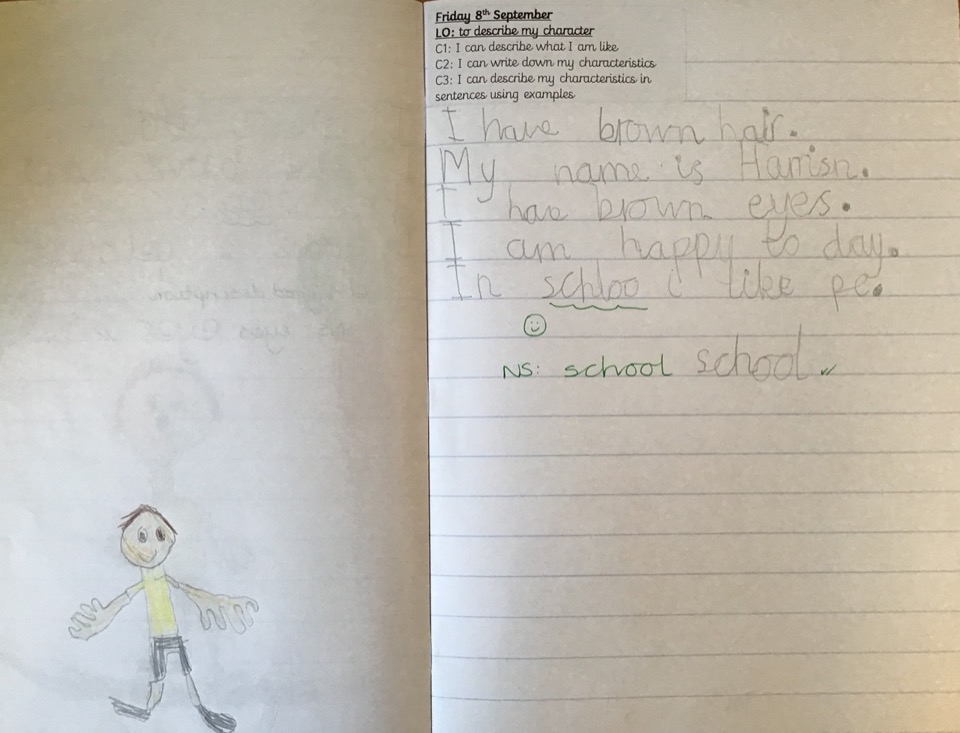 Friday 8th September
LO: to describe my character
C1: I can describe what I am like
C2: I can write down my characteristics
C3: I can describe my characteristics in
sentences using examples
I have brown hair.
My name is Harrisn.
I hae brown eyes.
I am happy to day.
In schloo i like pe.
NS: school school